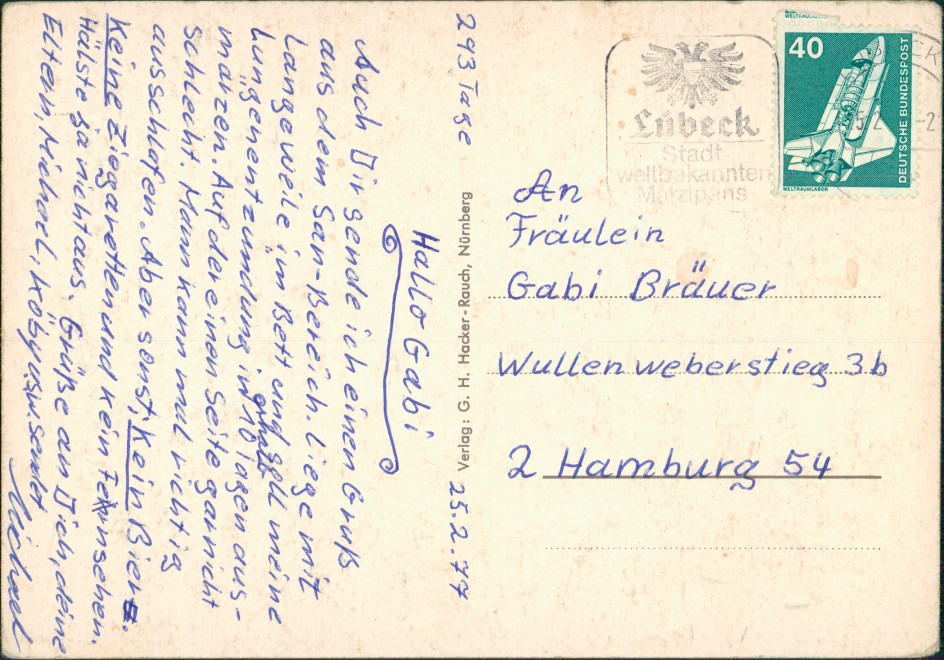 293 Tage
25.2.77
Hallo Gabi
Auch Dir sende ich einen Gruß
aus dem San-Bereich. Liege mit
Langeweile im Bett und soll meine
Lungenentzündung in 10 Tagen aus-
märzen. Auf der einen Seite gar nicht
schlecht. Mann kann mal richtig
ausschlafen. Aber sonst, kein Bier.
Keine Zigaretten und kein Fernsehen.
Hälste ja nicht aus. Grüße an Dich, deine
Eltern, Michael, Köby usw. sendet
Michael
Verlag: G. H. Hacker-Rauch, Nürnberg
Lübeck
Stadt
weltbekannten
Marzipans
40
DEUTSCHE BUNDESPOST
WELTRAUMLABOR
An
Fräulein
Gabi Bräuer
Wullenweberstieg 3b
2 Hamburg 54